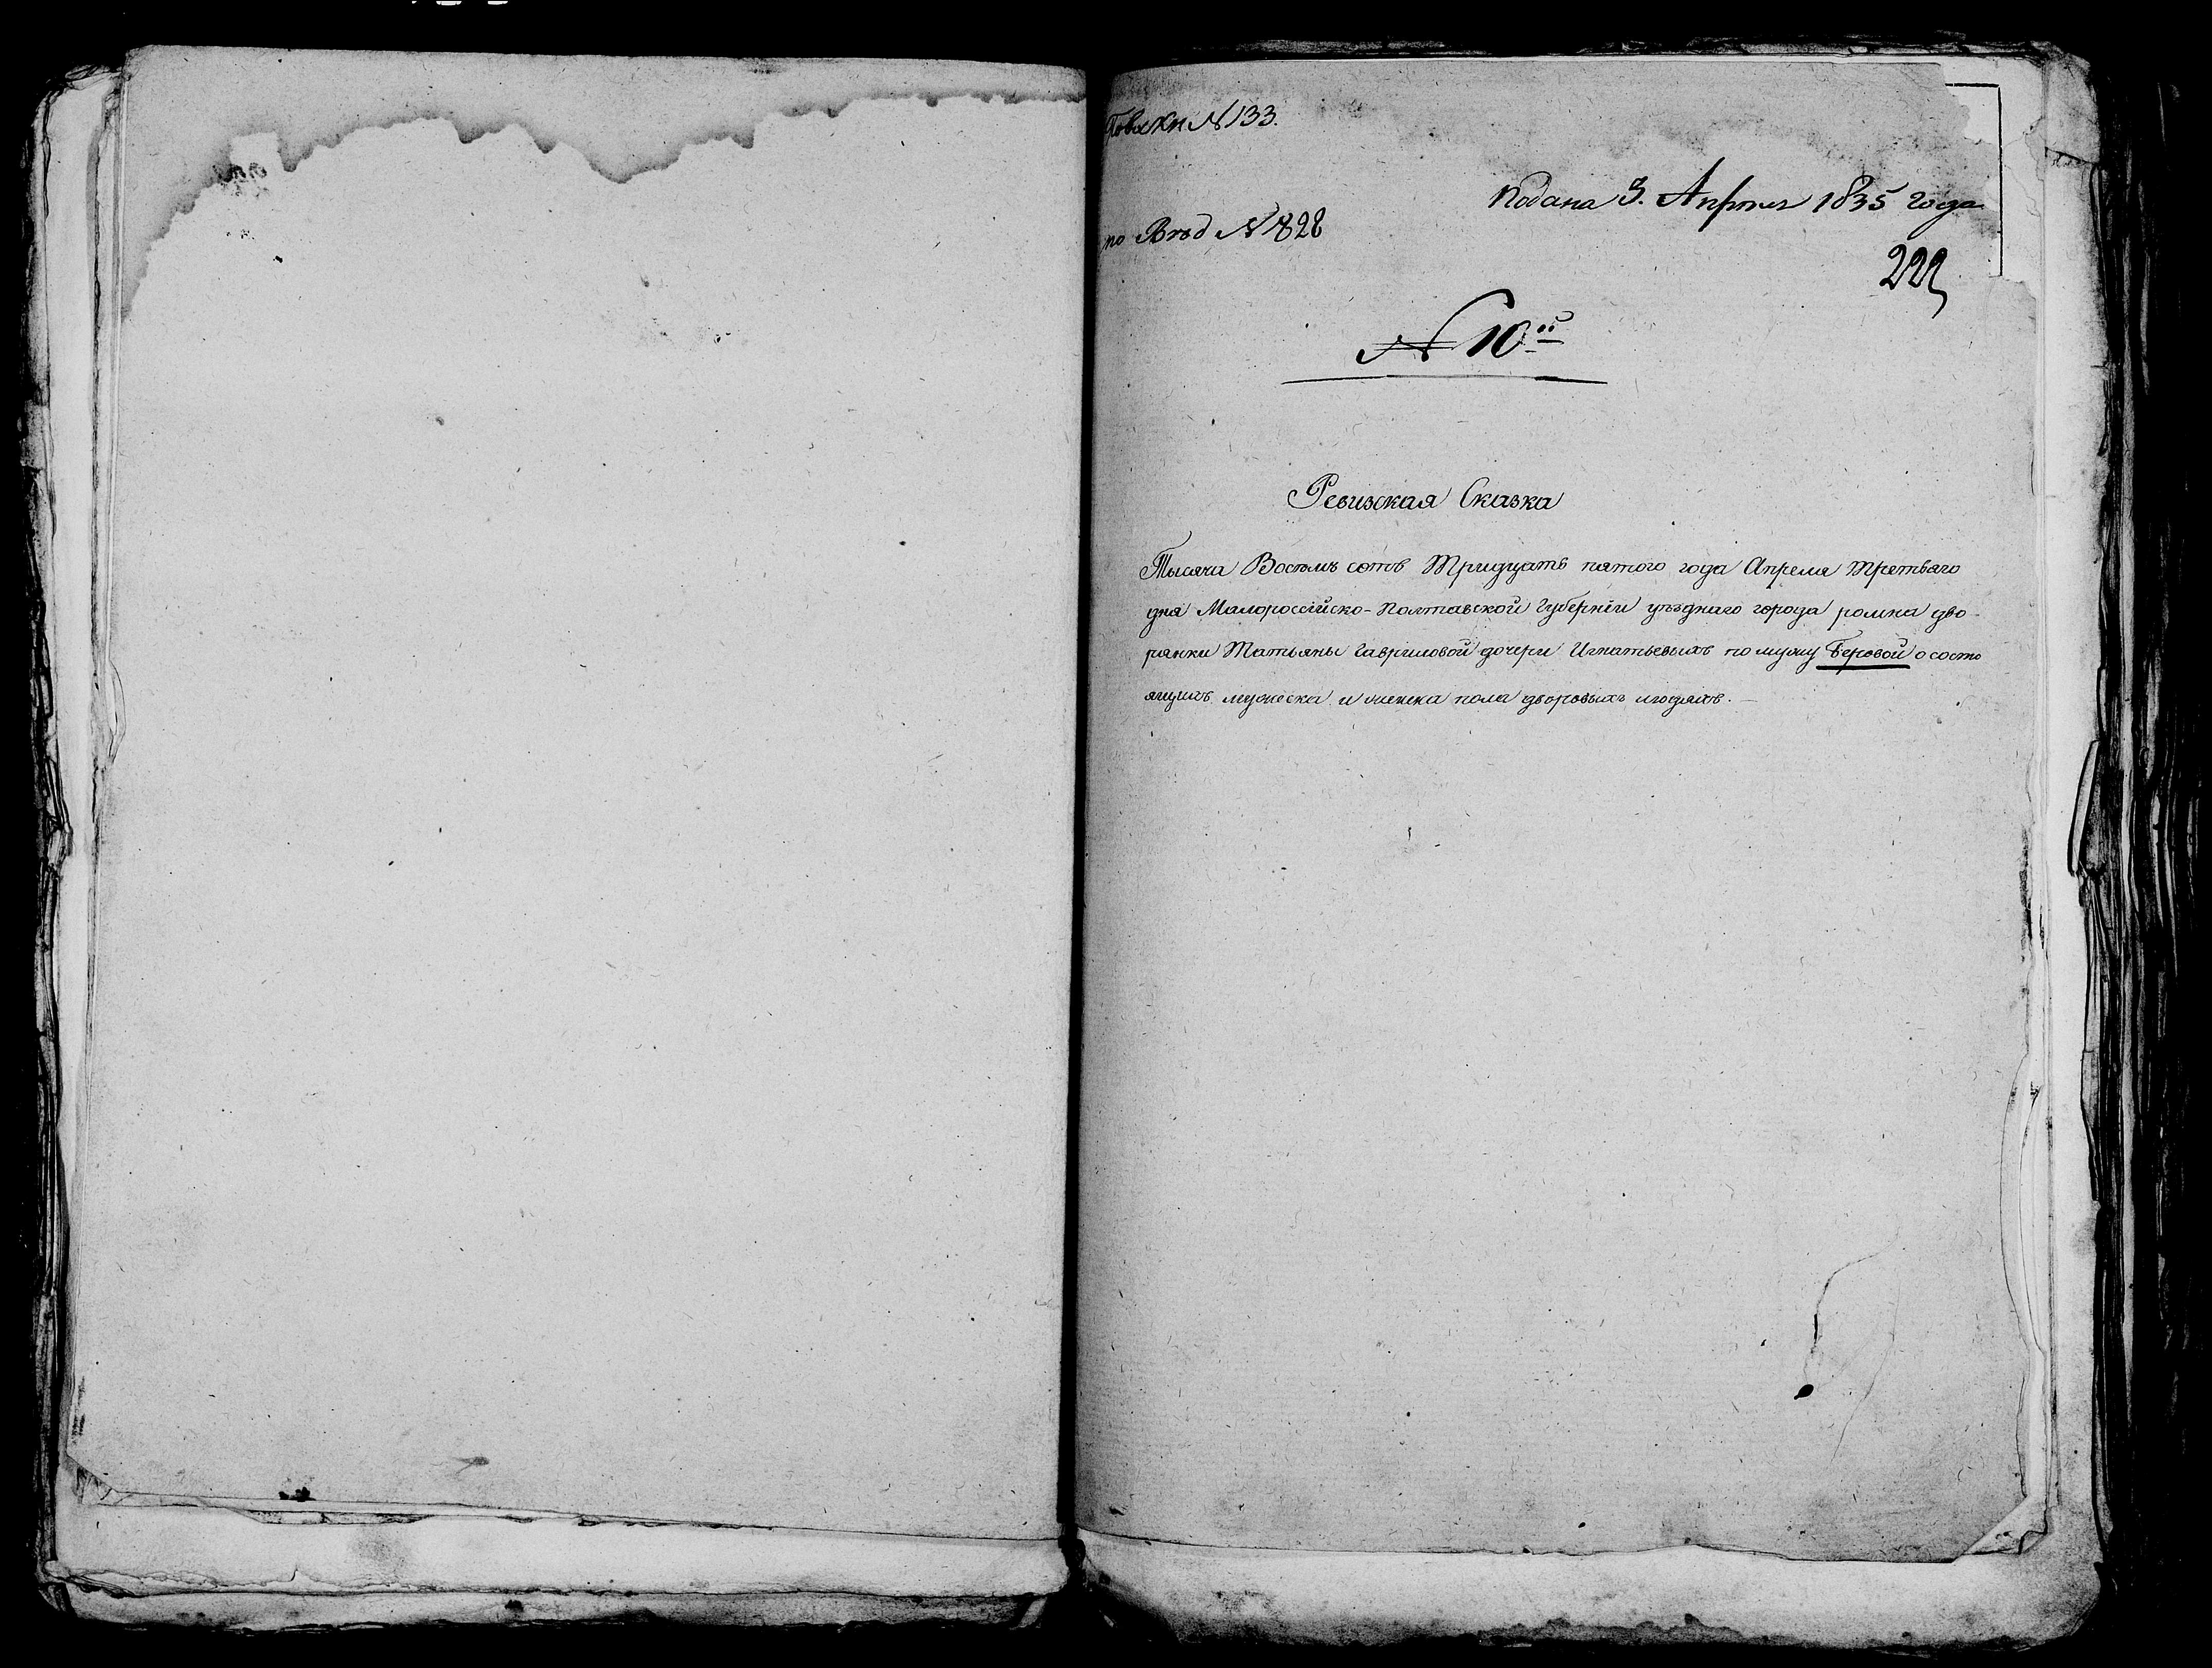 № 133.
Подана 3. Апреля 1835 года
по № 828
222
№ 10ой
Ревизская Сказка
Тысяча Восемь сотъ Тридцать пятого года Апреля Третьяго
дня Малороссійско-Полтавской Губерніи уѣзднаго города ромна дво
рянки Татьяны Гавриловой дочери Игнатьевыхъ по мужу Беровой о состо
ящихъ мужеска и женска пола дворовыхъ людяхъ. —